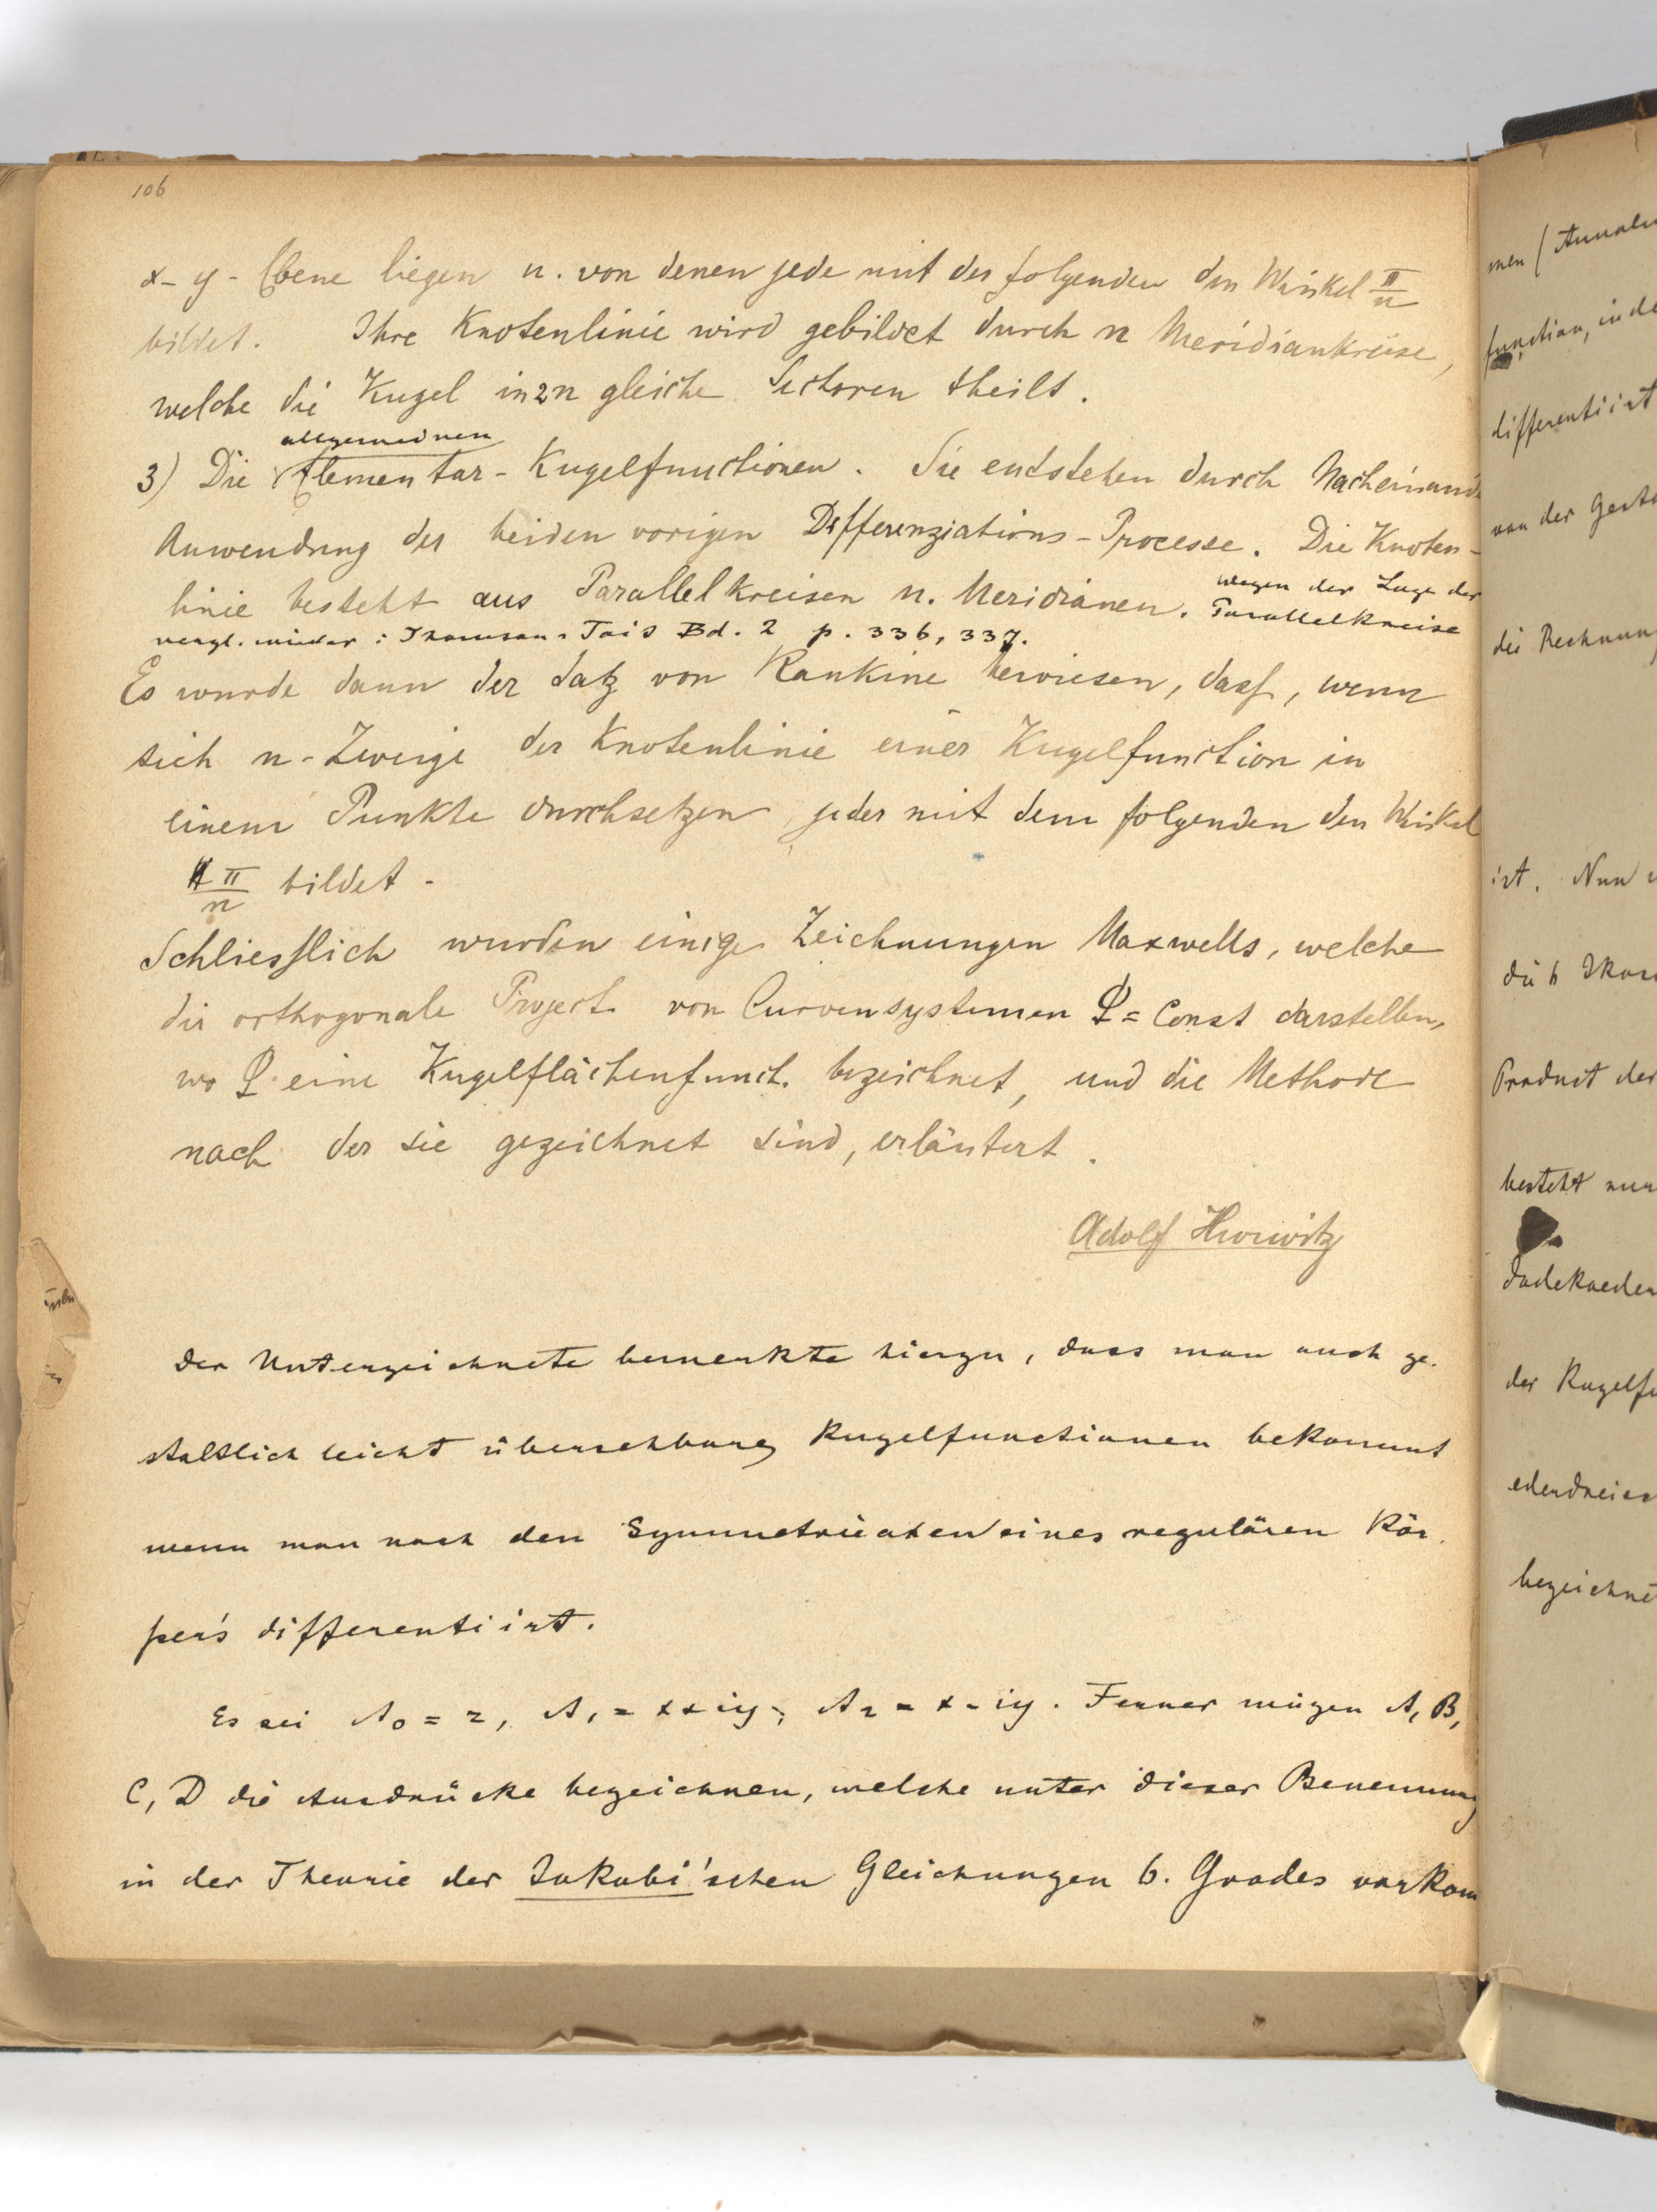 106
x-y-Ebene liegen u. von denen jede mit der folgenden den Winkel π/n
bildet. Ihre Knotenlinie wird gebildet durch n Meridiankreise,
welche die Kugel in 2n gleiche Sectoren theilt.
allgemeinen
3) Die Elementar-Kugelfunctionen. Sie entstehen durch Nacheinand
Anwendung der beiden vorigen Differenziations-Processe. Die Knoten-
linie besteht aus Parallelkreisen u. Meridianen. Wegen der Lage der
Parallelkreise
vergl. wieder: Thomson-Tait Bd. 2 p. 336, 337.
Es wurde dann der Satz von Rankine bewiesen, dass, wenn
sich n-Zweige der Knotenlinie einer Kugelfunction in
einem Punkte durchsetzen, jeder mit dem folgenden den Winkel
π/n bildet.
Schliesslich wurden einige Zeichnungen Maxwells, welche
die orthogonale Project. von Curvensystemen = Const darstellen,
wo eine Kugelflächenfunct. bezeichnet, und die Methode
nach der sie gezeichnet sind, erläutert.
Adolf Hurwitz
Der Unterzeichnete bemerkte hierzu, dass man auch ge-
staltlich leicht übersehbare Kugelfunctionen bekommt
wenn man nach den Symmetrieaxen eines regulären Kör-
pers differentiirt.
Es sei A₀ = z, A₁ = x+iy, A₂ = x-iy. Ferner mögen A, B,
C, D die Ausdrücke bezeichnen, welche unter dieser Benennung
in der Theorie der Jakobi'schen Gleichungen 6. Grades vorkom
men (Annalen
function, in de
differentiirt
von der Gesta
die Rechnung
ist. Nun
die 6
Product der
besteht nun
der Kugelfu
bezeichnet